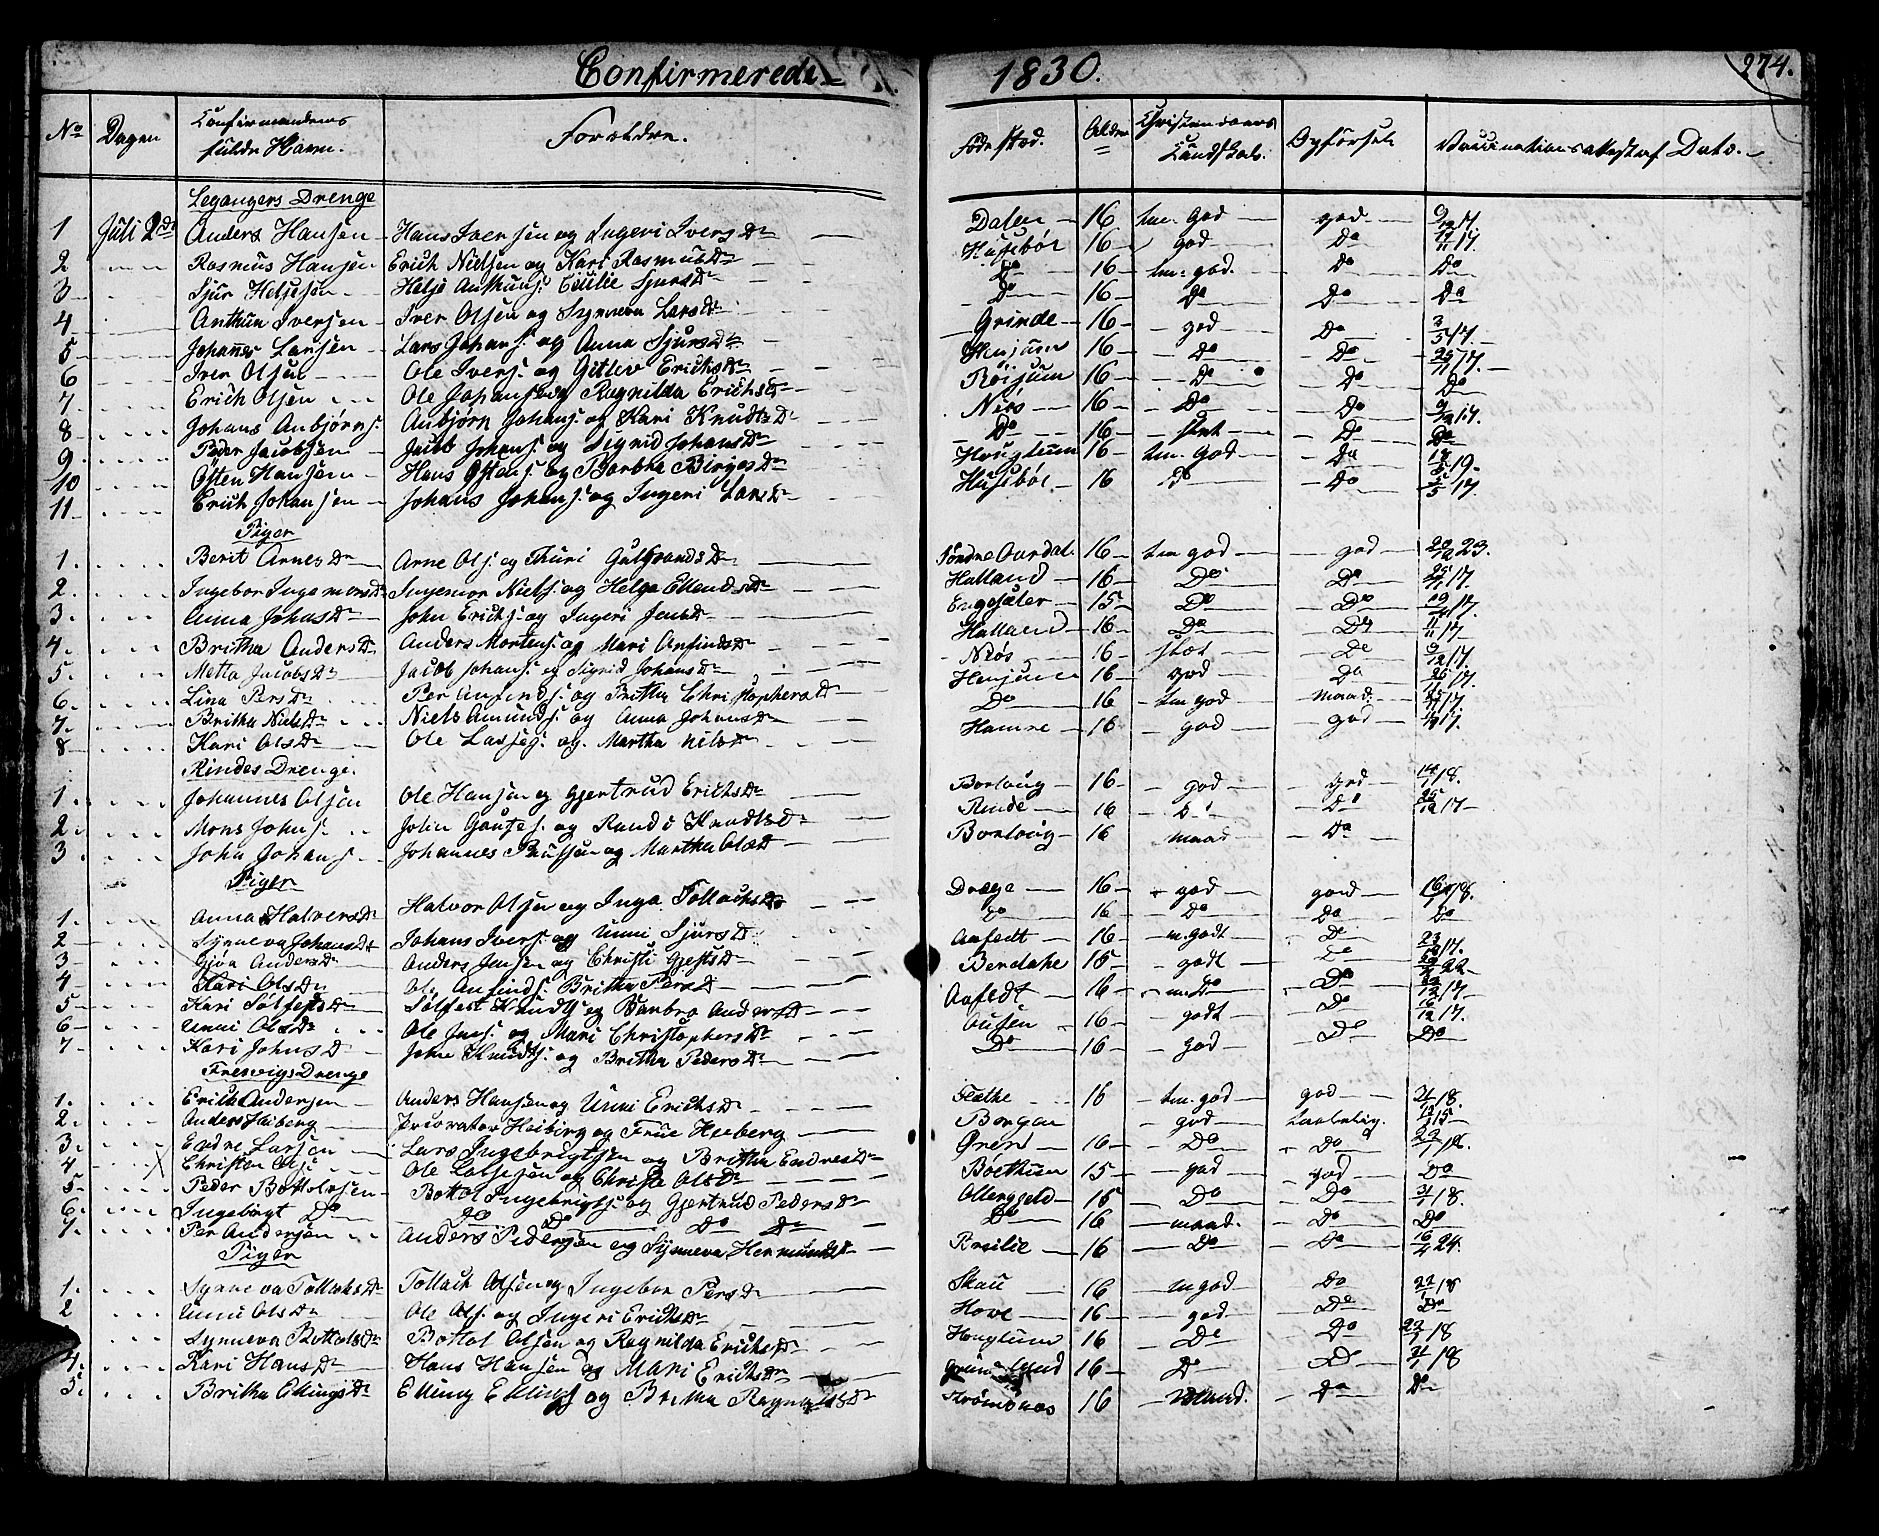 Confirmerede 1830. 274.
No Dagen Confirmandens fulde Navn. Forældre. Fødested. Alder Christendoms Kundskab. Opførsel Vaccinationsattest af Dato.
Legangers Drenge
1 Juli 2d Anders Hansen Hans Iversen og Ingeri Ivers Dr Dalen 16 tm. god god 9/12 17
2 Rasmus Hansen Erich Nielsen og Kari Rasmus Dr Husebøe 16 god Do 17.
3 Sjur Heljesen Helje Anthuns. Cicilie Sjurs Dr Do 16 tm. god. Do Do
4 Anthun Iversen Iver Olsen og Synneva Lars Dr Do 16 Do Do Do
5 Johannes Larsen Lars Johans. og Anna Sjurs Dr Grinde 16 god Do 17.
6 Iver Olsen Ole Ivers. og Gitlev Erichs Dr Henjum 16 Do Do 17.
7 Erich Olsen Ole Johansen og Ragnilda Erichs Dr Røisum 16 Do Do Do
8 Johans Anbjørns. Anbjørn Johans. og Kari Knudts Dr Niøs 16 Do Do 9/12 17.
9. Peder Jacobsen Jacob Johans. og Sigrid Johans Dr Do 16 slet Do Do
10 Østen Hansen Hans Østens. og Barbha Birges Dr Houglum 16 tm. god Do 19
11 Erich Johansen Johans Johans. og Ingeri Lars Dr Husebøe 16 Do Do 17.
Piger
1. Berit Arnes Dr Arne Ols. og Thuri Gulbrands Dr Søndre Aurdal. 16 tm god god 20/12 23.
2. Ingebor Ingemors Dr Ingemor Niels. og Helga Ellends Dr Halland 16 Do Do 17.
3. Anna Johns Dr John Erichs. og Ingeri Jens Dr Engesæter 15 Do Do 17.
4. Britha Anders Dr Anders Mortens. og Mari Anfinds Dr Halland 16 Do Do 11/11 17
5. Metta Jacobs Dr Jacob Johans. og Sigrid Johans Dr Niøs 16 slet Do 9/12 17.
6. Lina Pers Dr Per Anfinds. og Britha Christophers Dr Henjum 16 god Do 17.
7. Britha Niels Dr Niels Amunds. og Anna Johans Dr Do 16 tm god maad. 17.
8 Kari Ols Dr Ole Lasses. og Martha Nils Dr Hamre 16 god god 17.
Rindes Drenge.
1. Johannes Olsen Ole Hansen og Gjertrud Erichs Dr Borloug 16 god god 18.
2. Mons Johns. John Gautes. og Randi Knudts Dr Rinde 16 Do Do 17
3. John Johans. Johannes og Martha Ols Dr Borloug 16 maad Do
Piger
1. Anna Halvers Dr Halvor Olsen og Inga Tollachs Dr Drægе 16 god god 18.
2 Synneva Johans Dr Johans Ivers. og Unni Sjurs Dr Do 16 Do Do Do
3 Gjøa Anders Dr Anders Jensen og Christi Gjests Dr Aafedt 16 m. godt Do 17.
4 Kari Ols Dr Ole Anfinds. Britha Pers Dr Bendahe 15 godt Do 22
5 Kari Solfests Dr Solfest Knudts. og Banbro Anders Dr Aafedt 16 m. Do Do 17
6 Unni Ols Dr Ole Jens. og Mari Christophers Dr Ousen 16 godt Do 16/12 17.
7 Kari Johns Dr John Knudts. og Britha Peders Dr Do 16 god Do Do
Fresvigs Drenge
1. Erich Andersen Anders Hansen og Unni Erichs Dr Flæthe 16 tm. god god 18.
2. Anders Heiberg Procurator Heiberg og Frue Heiberg Bergen god taabelig. 15
3. Endre Larsen Lars Ingebrigtsen og Britha Endres Dr 16 Do Do
4 Christen Ols. Ole Lassesen og Christi Ols Dr Bøethun 15 god god Do
5. Peder Bottolvsen Bottol Ingebrigts. og Gjertrud Peders Dr 16 Do Do 18.
6. Ingebrigt Do Do Do Do Do Do 16 maad. Do Do
7. Per Andersen Anders Pedersen og Synneva Hermunds Dr 16 Do Do 24.
Piger
1. Synneva Tollachs Dr Tollach Olsen og Ingebor Pers Dr Skau 16 m god Do 18
2 Unni Ols Dr Ole Ols. og Ingeri Erichs Dr Hove 16 god Do Do
Synneva Bottols Dr Bottol Olsen og Ragnilda Erichs Dr Houglum 16 Do Do 18
4. Kari Hans Dr Hans Hansen og Mari Erichs Dr 16 Do Do 18
5. Britha Ellings Dr Elling Ellings. og Britha Ragnvalds Dr Strømsnæs 16 maad. Do Do